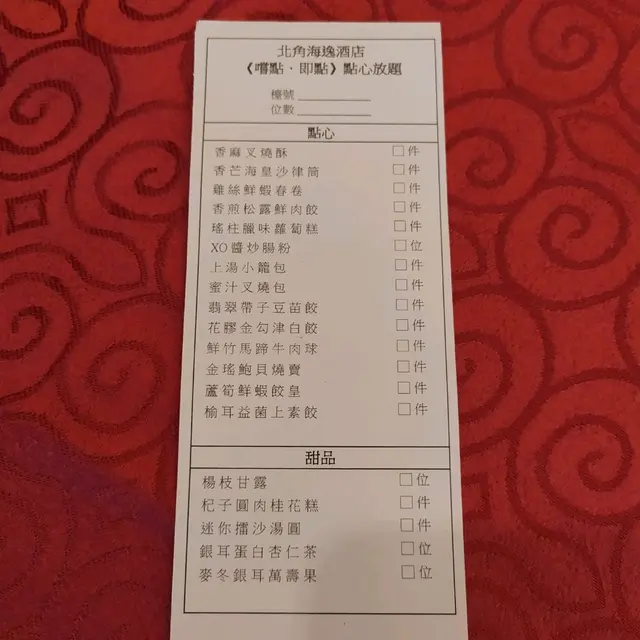 北角海逸酒店
《嚐點．即點》點心放題
檯號
位數
點心
香麻叉燒酥 □件
香芒海皇沙律筒 □件
雞絲鮮蝦春卷 □件
香煎松露鮮肉餃 □件
瑤柱臘味蘿蔔糕 □件
XO醬炒腸粉 □位
上湯小籠包 □件
蜜汁叉燒包 □件
翡翠帶子豆苗餃 □件
花膠金勾津白餃 □件
鮮竹馬蹄牛肉球 □件
金瑤鮑貝燒賣 □件
蘆筍鮮蝦餃皇 □件
榆耳益菌上素餃 □件
甜品
楊枝甘露 □位
杞子圓肉桂花糕 □件
迷你擂沙湯圓 □件
銀耳蛋白杏仁茶 □位
麥冬銀耳萬壽果 □位